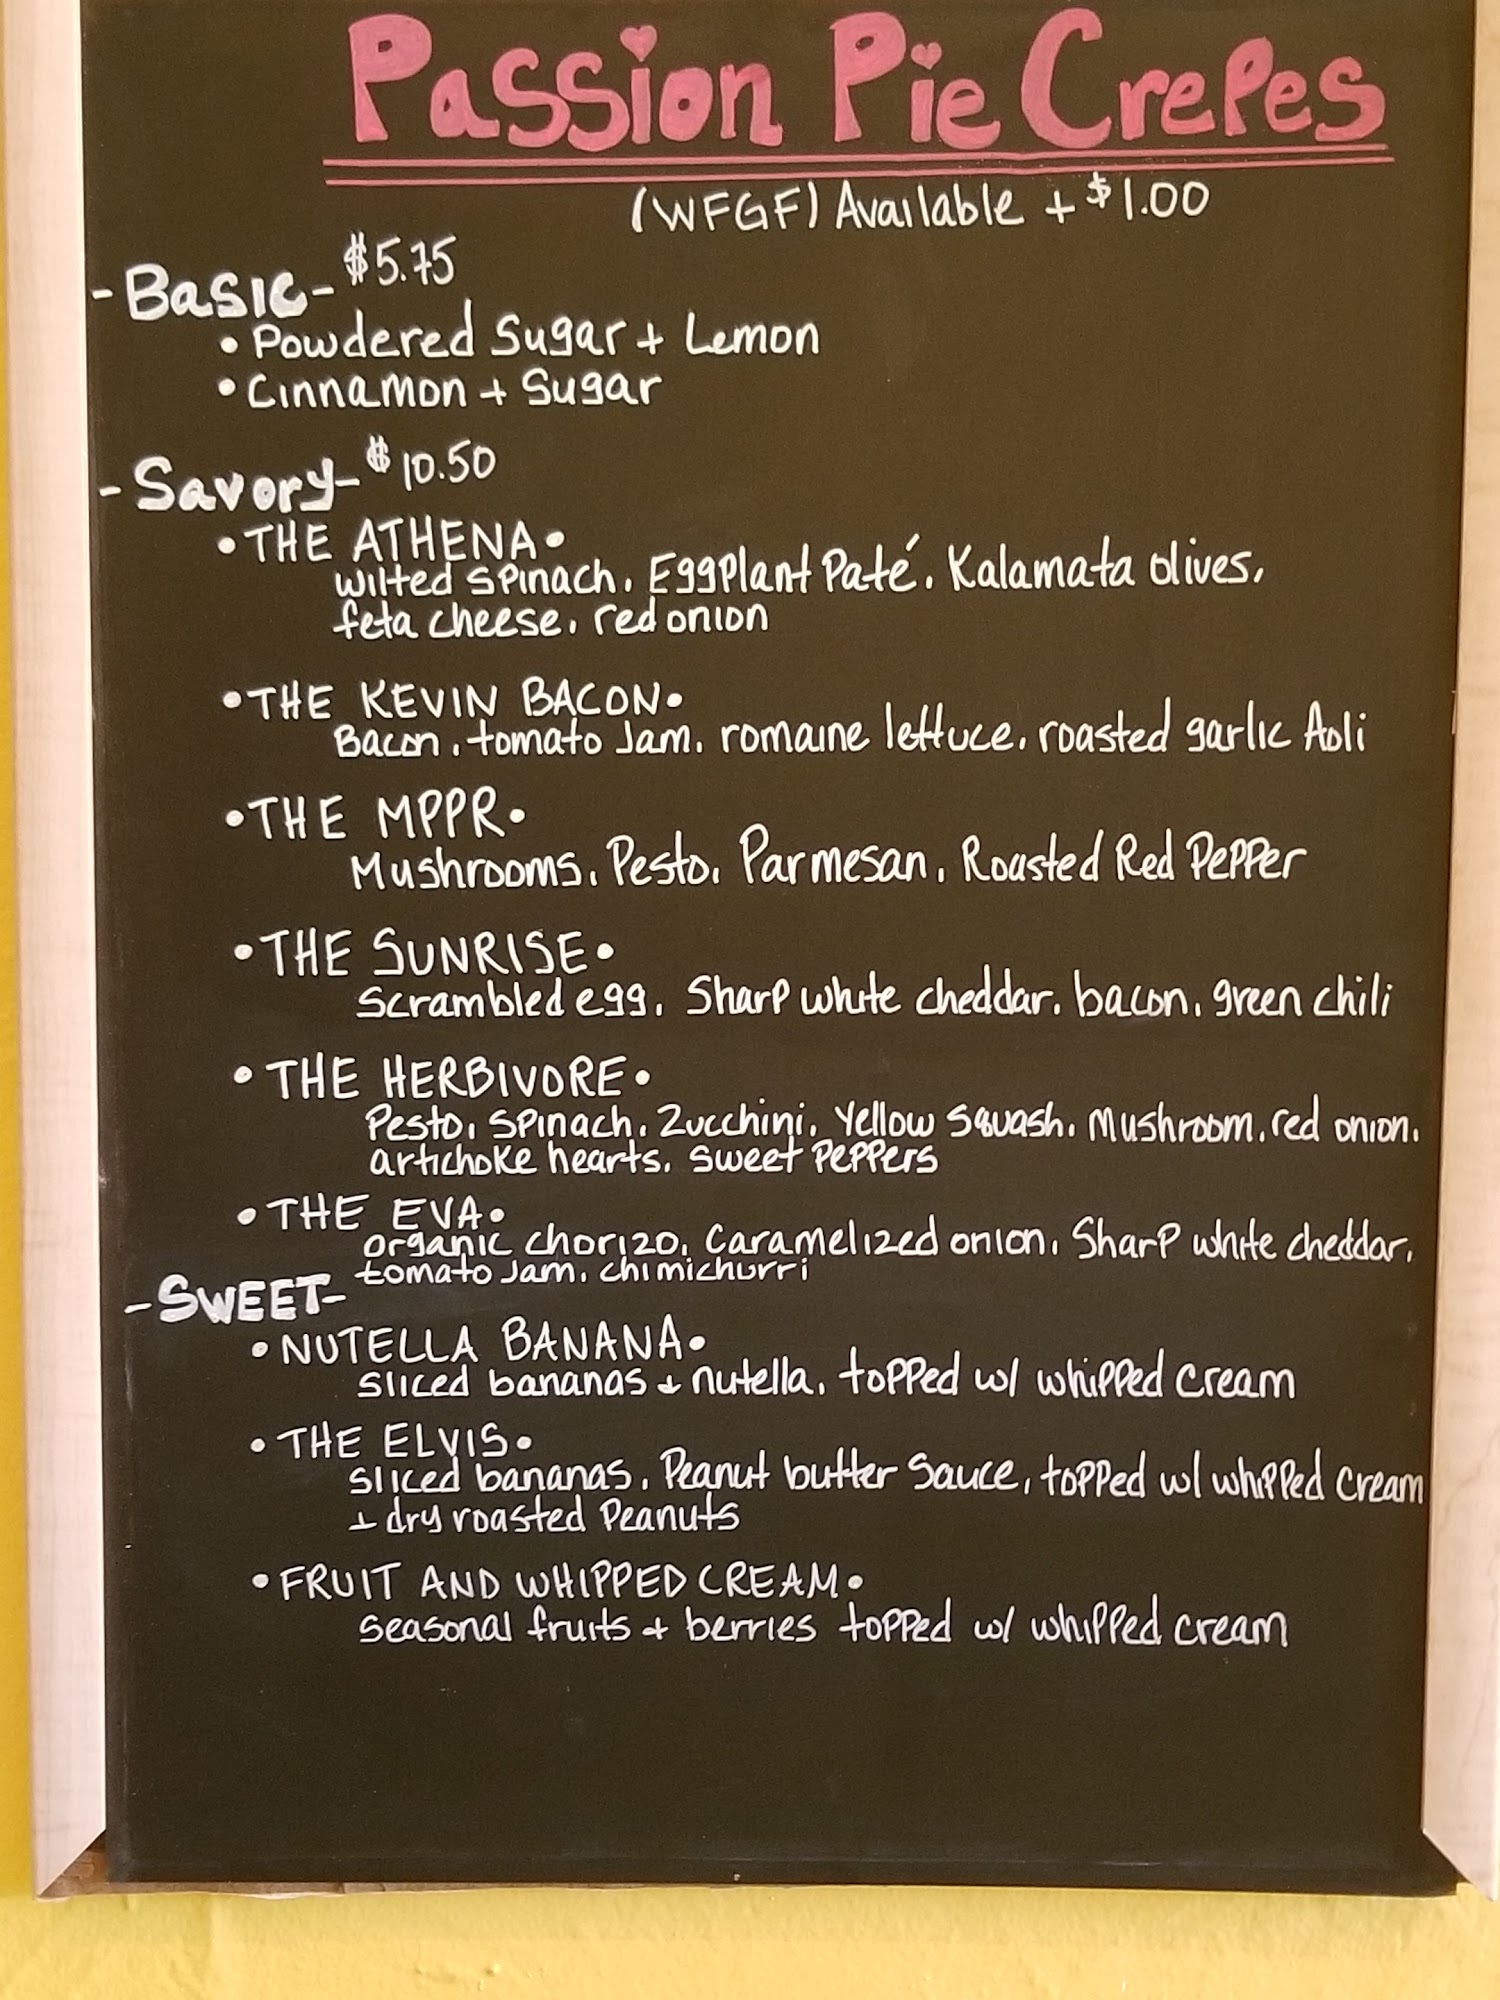 Passion Pie Crepes
(WFGF) Available + $1.00
-Basic- $5.75
• Powdered Sugar + Lemon
• Cinnamon + Sugar
-Savory- $10.50
• THE ATHENA •
wilted spinach, Eggplant Paté, Kalamata olives,
feta cheese, red onion
• THE KEVIN BACON •
Bacon, tomato Jam, romaine lettuce, roasted garlic Aoli
• THE MPPR •
Mushrooms, Pesto, Parmesan, Roasted Red Pepper
• THE SUNRISE •
Scrambled egg, Sharp white cheddar, bacon, green chili
• THE HERBIVORE •
Pesto, Spinach, Zucchini, Yellow Squash, Mushroom, red onion,
artichoke hearts, sweet Peppers
• THE EVA •
organic chorizo, Caramelized onion, Sharp white cheddar,
tomato Jam, chimichurri
-SWEET-
• NUTELLA BANANA •
sliced bananas + nutella, topped w/ whipped cream
• THE ELVIS •
sliced bananas, Peanut butter Sauce, topped w/ whipped cream
+ dry roasted Peanuts
• FRUIT AND WHIPPED CREAM •
seasonal fruits + berries topped w/ whipped cream